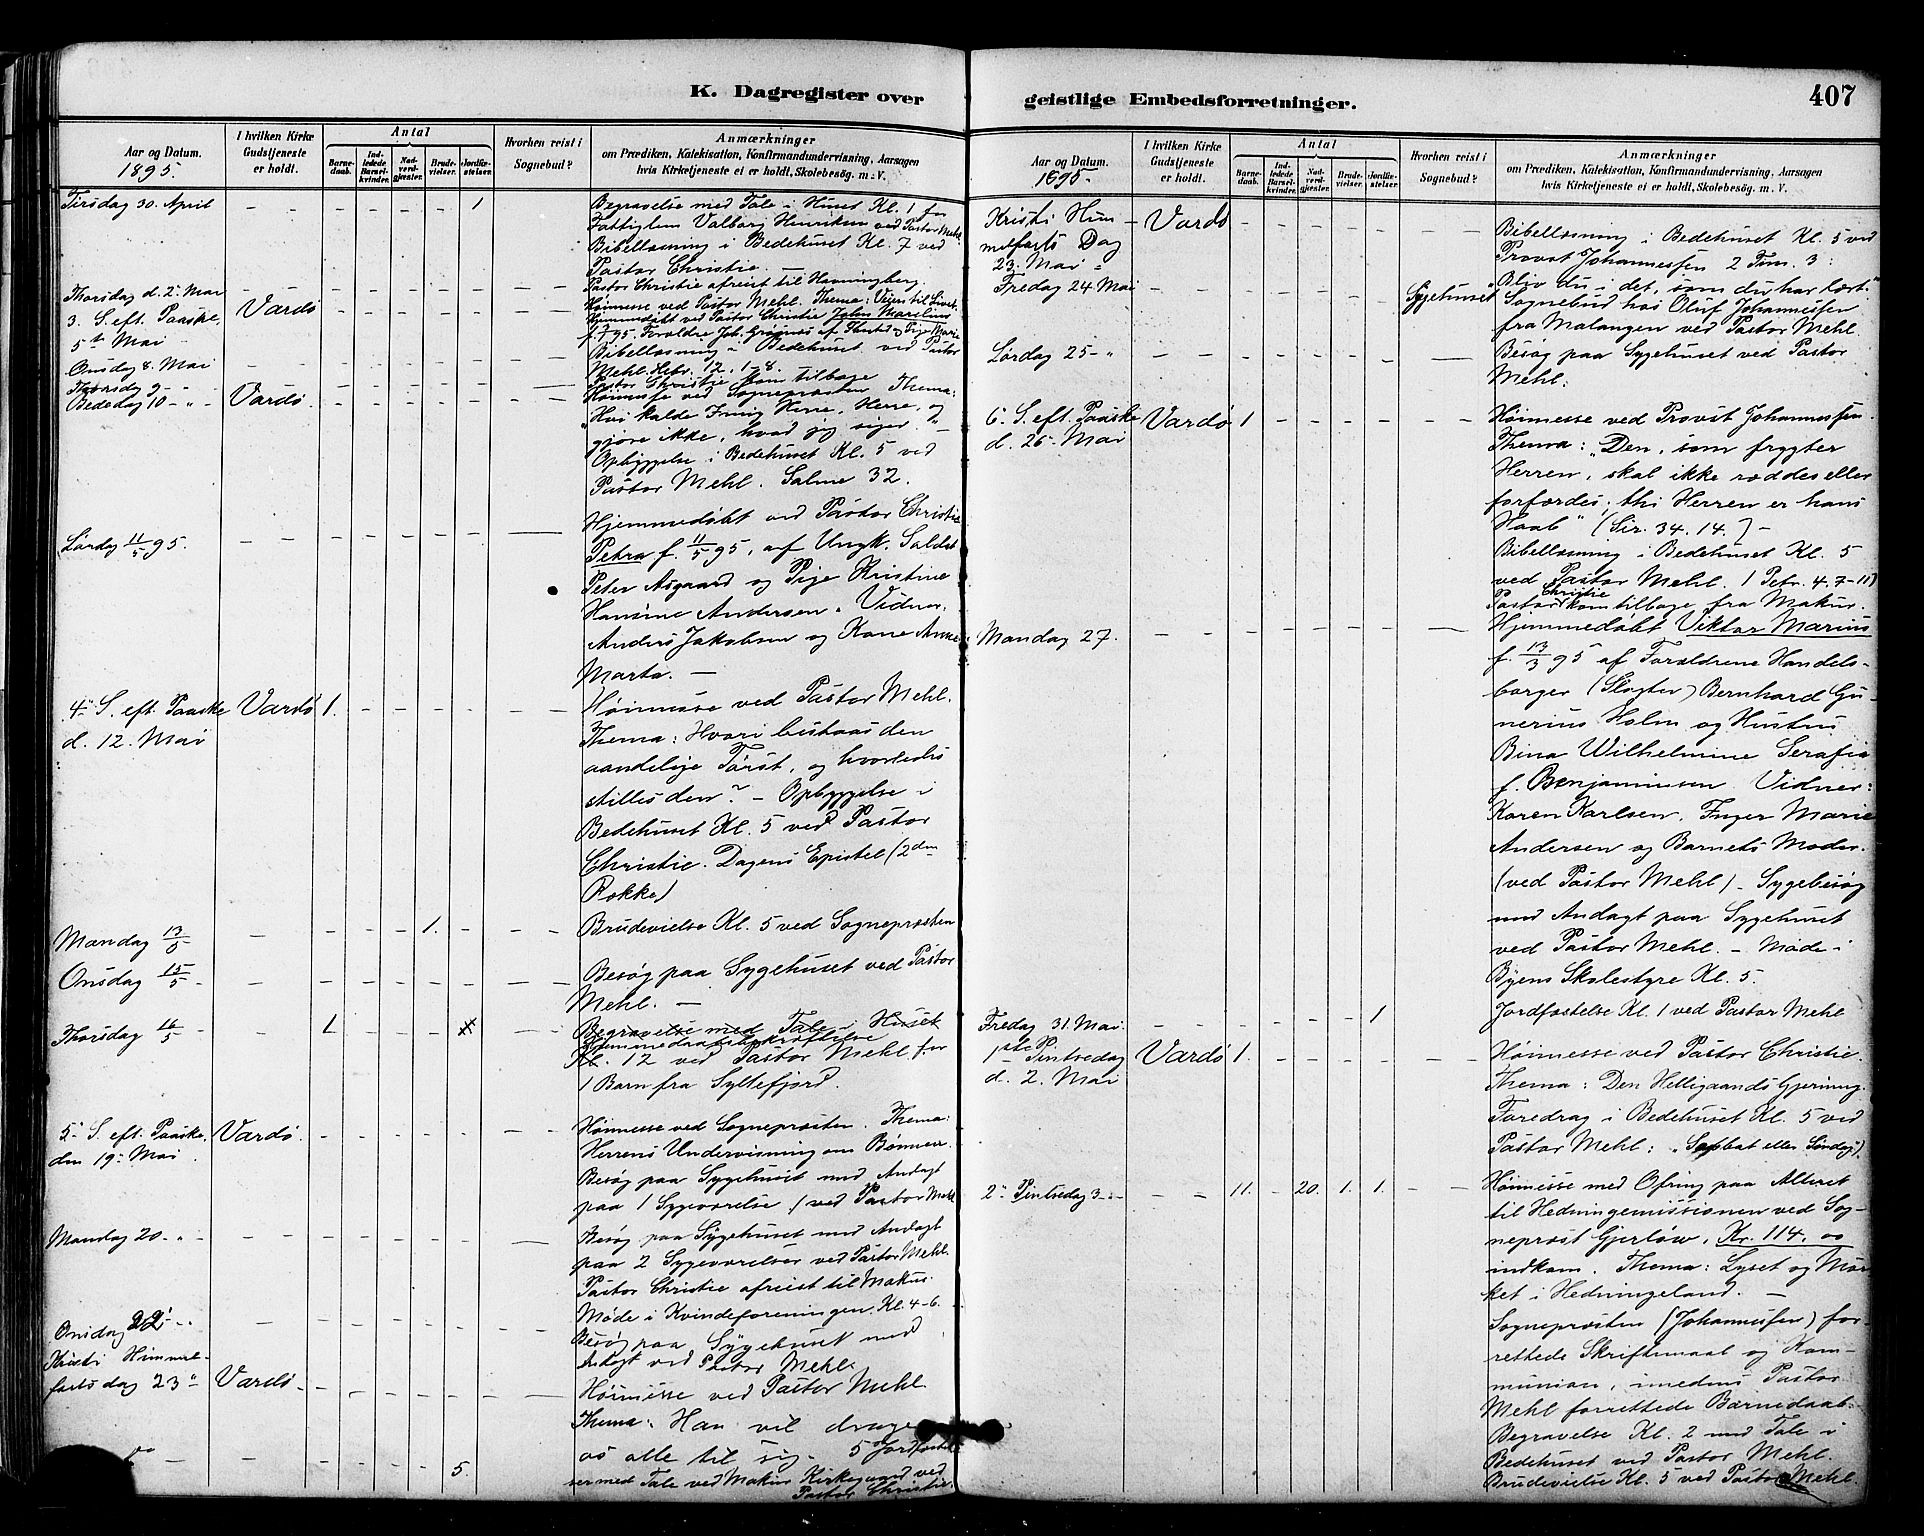 K. Dagregister over geistlige Embedsforretninger.
407
Aar og Datum.
1895.
I hvilken Kirke Gudstjeneste er holdt.
Antal
Barnedaab.
Indledede Barselkvinder.
Nadverdgjester.
Brudevielser.
Jordfæstelser.
Hvorhen reist i Sognebud?
Anmærkninger
om Prædiken, Katekisation, Konfirmandundervisning, Aarsagen
hvis Kirketjeneste ei er holdt, Skolebesøg. m. V.
Tirsdag 30. April 1
Begravelse med Tale i Huset Kl. 1 for
Fattiglem Valborg Henriksen ved Pastor Mehl.
Bibellæsning i Bedehuset Kl. 7 ved
Pastor Christie. —
Thorsdag d. 2. Mai
Pastor Christie afreist til Havningberg.
3. S. eft. Paaske, Vardø
5te Mai
Høimesse ved Pastor Mehl. Thema: Veien til Livet.
Hjemmedøbt ved Pastor Christie John Marelius
Onsdag 8. Mai
Bibellæsning i Bedehuset ved Pastor
Mehl. Hebr. 12, 1-8.
Thorsdag 9 - "
Pastor Christie kom tilbage
Bededag 10 - " - Vardø.
Høimesse ved Sognepræsten Thema:
"Hvi kalde I mig Herre, Herre, og
gjøre ikke, hvad jeg siger." —
Opbyggelse i Bedehuset Kl. 5 ved
Pastor Mehl. Salme 32.
Lørdag 11/5 95.
Hjemmedøbt ved Pastor Christie
Petra f. 11/5 95, af Ungk. Soldat
Peter Asgaard og Pige Kristine
Hansine Andersen. Vidner.
Anders Jakobsen og Kone Anne
Marta. —
4de S. eft. Paaske Vardø 1.
d. 12. Mai
Høimesse ved Pastor Mehl.
Thema: Hvori bestaar den
aandelige Tørst, og hvorledes
stilles den? — Opbyggelse i
Bedehuset Kl. 5 ved Pastor
Christie. Dagens Epistel (2den
Række)
Mandag 13/5 1.
Brudevielse Kl. 5 ved Sognepræsten
Onsdag 15/5
Besøg paa Sygehuset ved Pastor
Mehl. —
Thorsdag 16/5 1
Begravelse med Tale i Huset
Hjemmedaabsbekræftelse
Kl. 12 ved Pastor Mehl for
1 Barn fra Syltefjord.
5te S. eft. Paaske. Vardø.
den 19de Mai
Høimesse ved Sognepræsten. Thema:
Herrens Undervisning om Bønnen.
Besøg paa Sygehuset med Andagt
paa 1 Sygeværelse (ved Pastor Mehl
Mandag 20 - " -
Besøg paa Sygehuset med Andagt
paa 2 Sygeværelser ved Pastor Mehl.
Pastor Christie afreist til Makur.
Møde i Kvindeforeningen. Kl. 4-6.
Onsdag 22 - " -
Besøg paa Sygehuset med
Andagt ved Pastor Mehl.
Kristi Himmel-
fartsdag 23 " Vardø
Høimesse ved Pastor Mehl
Thema: Han vil drage
os alle til sig. — 5 Jordfæstel
5.
ser med Tale ved Makur Kirkegaard ved
Pastor Christie.
Aar og Datum.
1895.
I hvilken Kirke Gudstjeneste er holdt.
Antal
Barnedaab.
Indledede Barselkvinder.
Nadverdgjester.
Brudevielser.
Jordfæstelser.
Hvorhen reist i Sognebud?
Anmærkninger
om Prædiken, Katekisation, Konfirmandundervisning, Aarsagen
hvis Kirketjeneste ei er holdt, Skolebesøg. m. V.
Kristi Him- Vardø
melfarts Dag
23. Mai
Bibellæsning i Bedehuset Kl. 5 ved
Provst Johannessen 2 Tim. 3:
"Bliv du i det, som du har lært."
Fredag 24. Mai Sygehuset
Sognebud hos Oluf Johannessen
fra Malangen ved Pastor Mehl.
Lørdag 25 - "
Besøg paa Sygehuset ved Pastor
Mehl.
6. S. eft. Paaske Vardø 1
d. 26. Mai
Høimesse ved Provst Johannessen.
Thema: "Den, som frygter
Herren, skal ikke ræddes eller
forfærdes; thi Herren er hans
Haab" (Sir. 34. 14.) —
Bibellæsning i Bedehuset Kl. 5
ved Pastor Mehl. 1 Petr. 4. 7-11)
Pastor Christie kom tilbage fra Makur.
Mandag 27.
Hjemmedøbt Viktor Marius
f. 13/3 95 af Forældrene Handels-
borger (Slagter) Bernhard Gu-
nerius Holm og Hustru
Bina Wilhelmine Serafia
f. Benjaminsen. Vidner:
Karen Karlsen, Inger Marie
Andersen og Barnets Moder.
(ved Pastor Mehl) — Sygebesøg
med Andagt paa Sygehuset
ved Pastor Mehl. — Møde i
Byens Skolestyre Kl. 5.
Fredag 31. Mai. 1
Jordfæstelse Kl. 1 ved Pastor Mehl
1ste Pintsedag Vardø 1.
d. 2. Mai
Høimesse ved Pastor Christie.
Thema: Den Helligaands Gjerning.
Foredrag i Bedehuset Kl. 5 ved
Pastor Mehl: "Sabbat eller Søndag").
2. Pintsedag 3 - " - 11. 20. 1. 1.
Høimesse med Ofring paa Alteret
til Hedningemissionen ved Sog-
neprest Gjerløw. Kr. 114. oo
indkom. Thema: Lyset og Mør-
ket i Hedningeland. —
Sognepræsten (Johannessen) for-
rettede Skriftemaal og Kom-
munion, imedens Pastor
Mehl forrettede Barnedaab.
Begravelse Kl. 2 med Tale i
Bedehuset ved Pastor Mehl.
Brudevielse Kl. 5 ved Pastor Mehl.